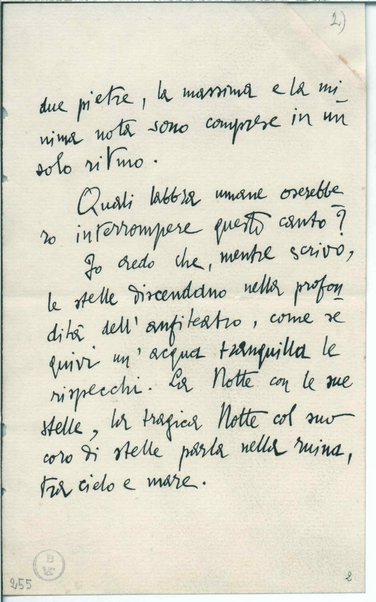 2)
due pietre, la massima e la mi
nima nota sono comprese in un
solo ritmo.
Quali labbra umane oserebbe
ro interrompere questo canto?
Io credo che, mentre scrivo,
le stelle discendano nella profon
dità dell'anfiteatro, come se
quivi un'acqua tranquilla le
rispecchi. La Notte con le sue
stelle, la tragica Notte col suo
coro di stelle parla nella ruina,
tra cielo e mare.
255
2